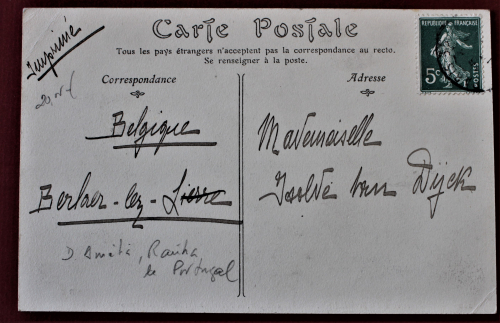 Carte Postale
Tous les pays étrangers n'acceptent pas la correspondance au recto.
Se renseigner à la poste.
Correspondance
Adresse
Imprimé
Belgique
Berlaer-lez-Lierre
D. Amélia, Rainha
de Portugal
Mademoiselle
Isolde van Dÿck
5c
POSTES